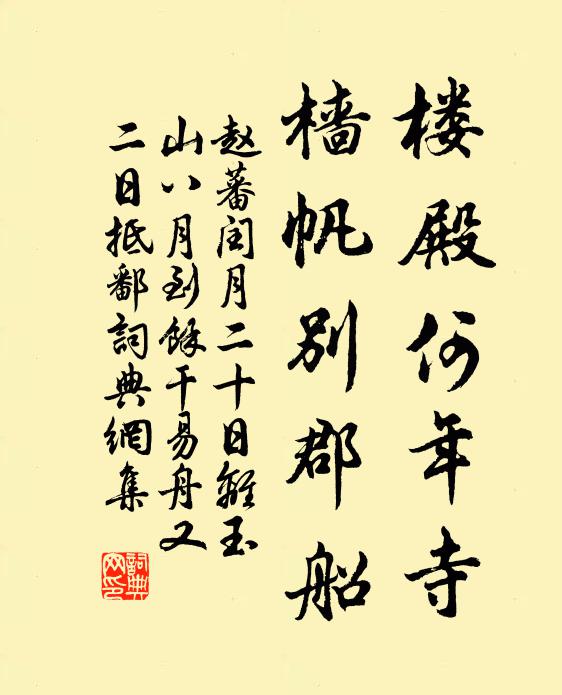 楼殿何年寺
樯帆别郡船
赵蕃闰月二十日離玉
山八月到馀干易舟又
二日抵鄱詞典網集
詞典网印